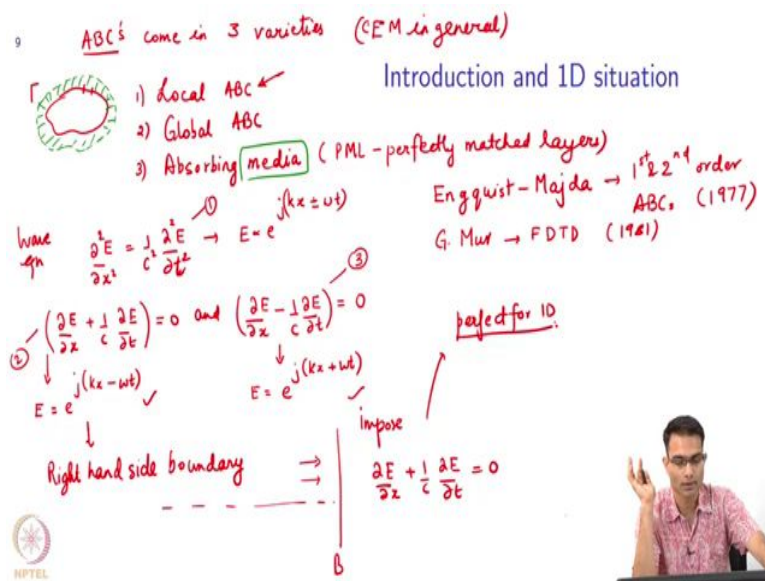 9
ABC's come in 3 varieties (CEM in general)
Introduction and 1D situation
Γ
1) Local ABC ↙
2) Global ABC
3) Absorbing media (PML - perfectly matched layers)
Engquist-Majda → 1st & 2nd order
ABCs (1977)
G. Mur → FDTD (1981)
Wave
eqn ∂²E/∂x² = 1/c² ∂²E/∂t² → E = e^j(kx ± ωt)
①
② (∂E/∂x + 1/c ∂E/∂t) = 0 and (∂E/∂x - 1/c ∂E/∂t) = 0 ③
perfect for 1D.
E = e^j(kx - ωt) ✓
E = e^j(kx + ωt) ✓
impose
Right hand side boundary
∂E/∂x + 1/c ∂E/∂t = 0
B
NPTEL